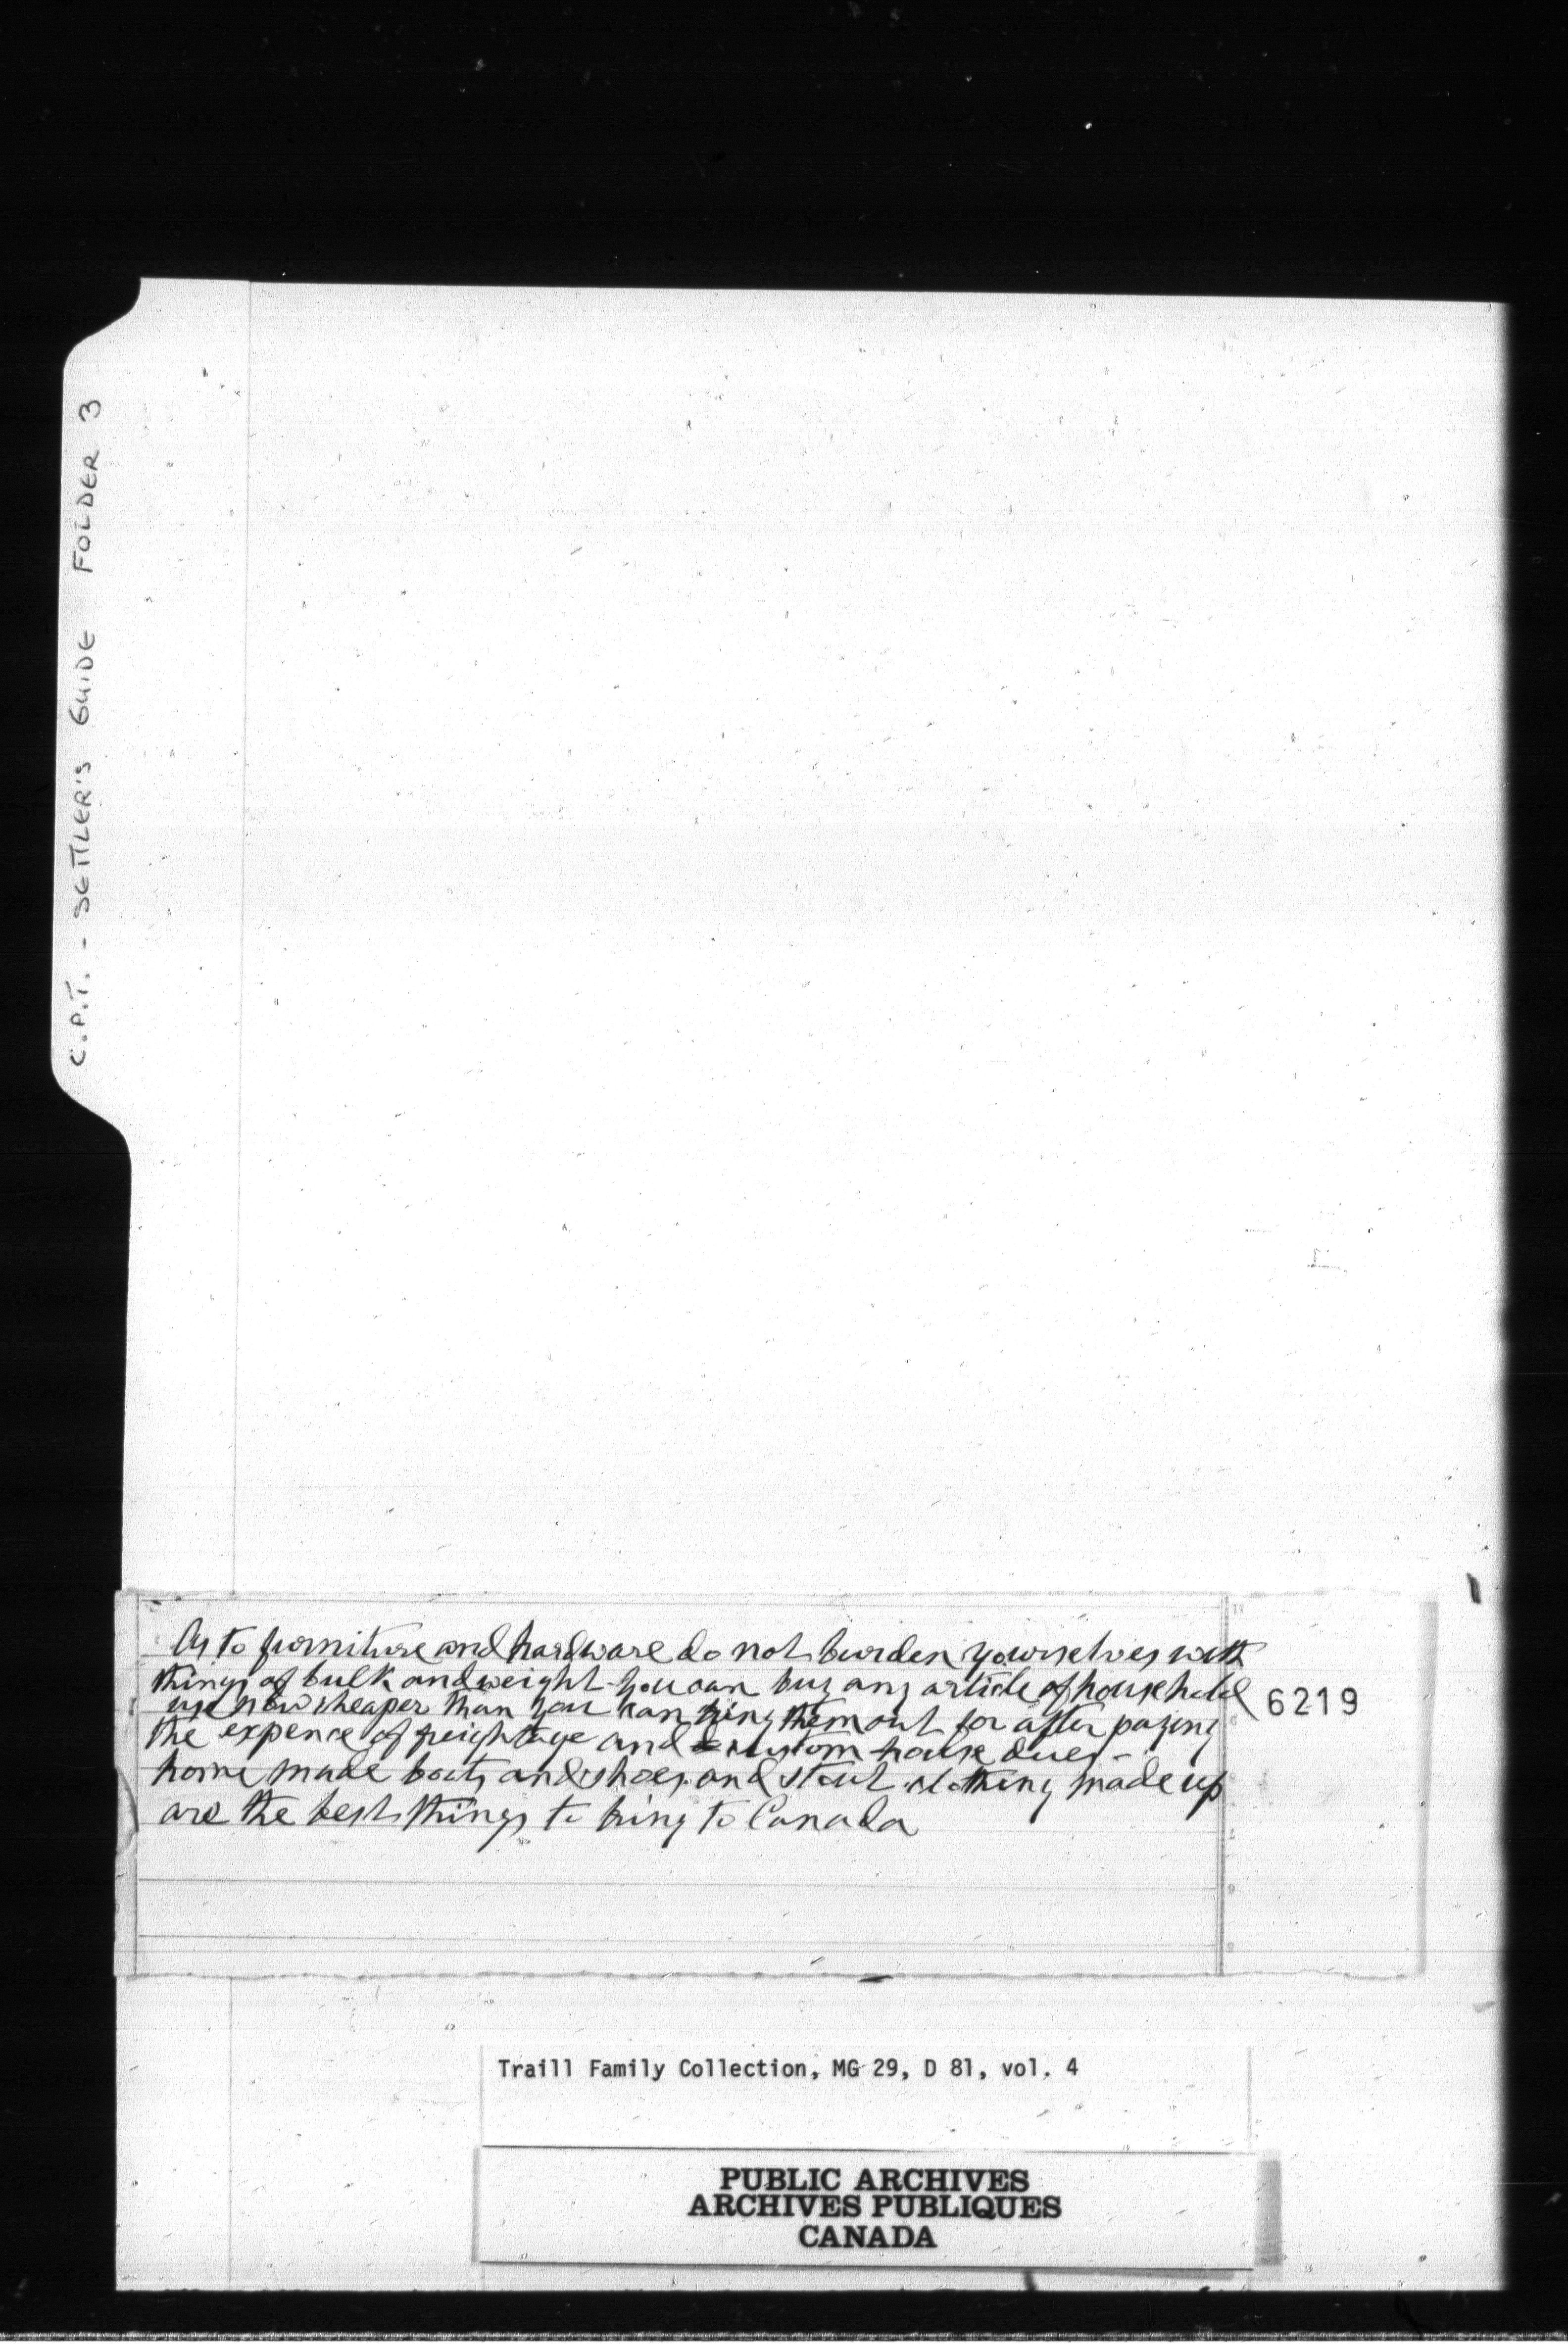 C.P.T. - SETTLER'S GUIDE FOLDER 3
As to furniture and hardware do not burden yourselves with
things of bulk and weight - you can buy any article of household
use now cheaper than you can bring them out for after paying
the expence of freightage and custom house dues -
home made boots and shoes and stout clothing made up
are the best things to bring to Canada
6219
Traill Family Collection, MG 29, D 81, vol. 4
PUBLIC ARCHIVES
ARCHIVES PUBLIQUES
CANADA